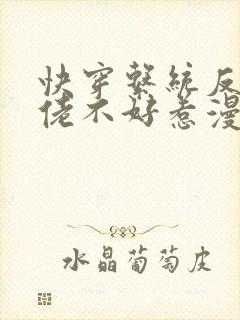 快穿系统反
佬不好惹漫
水晶葡萄皮